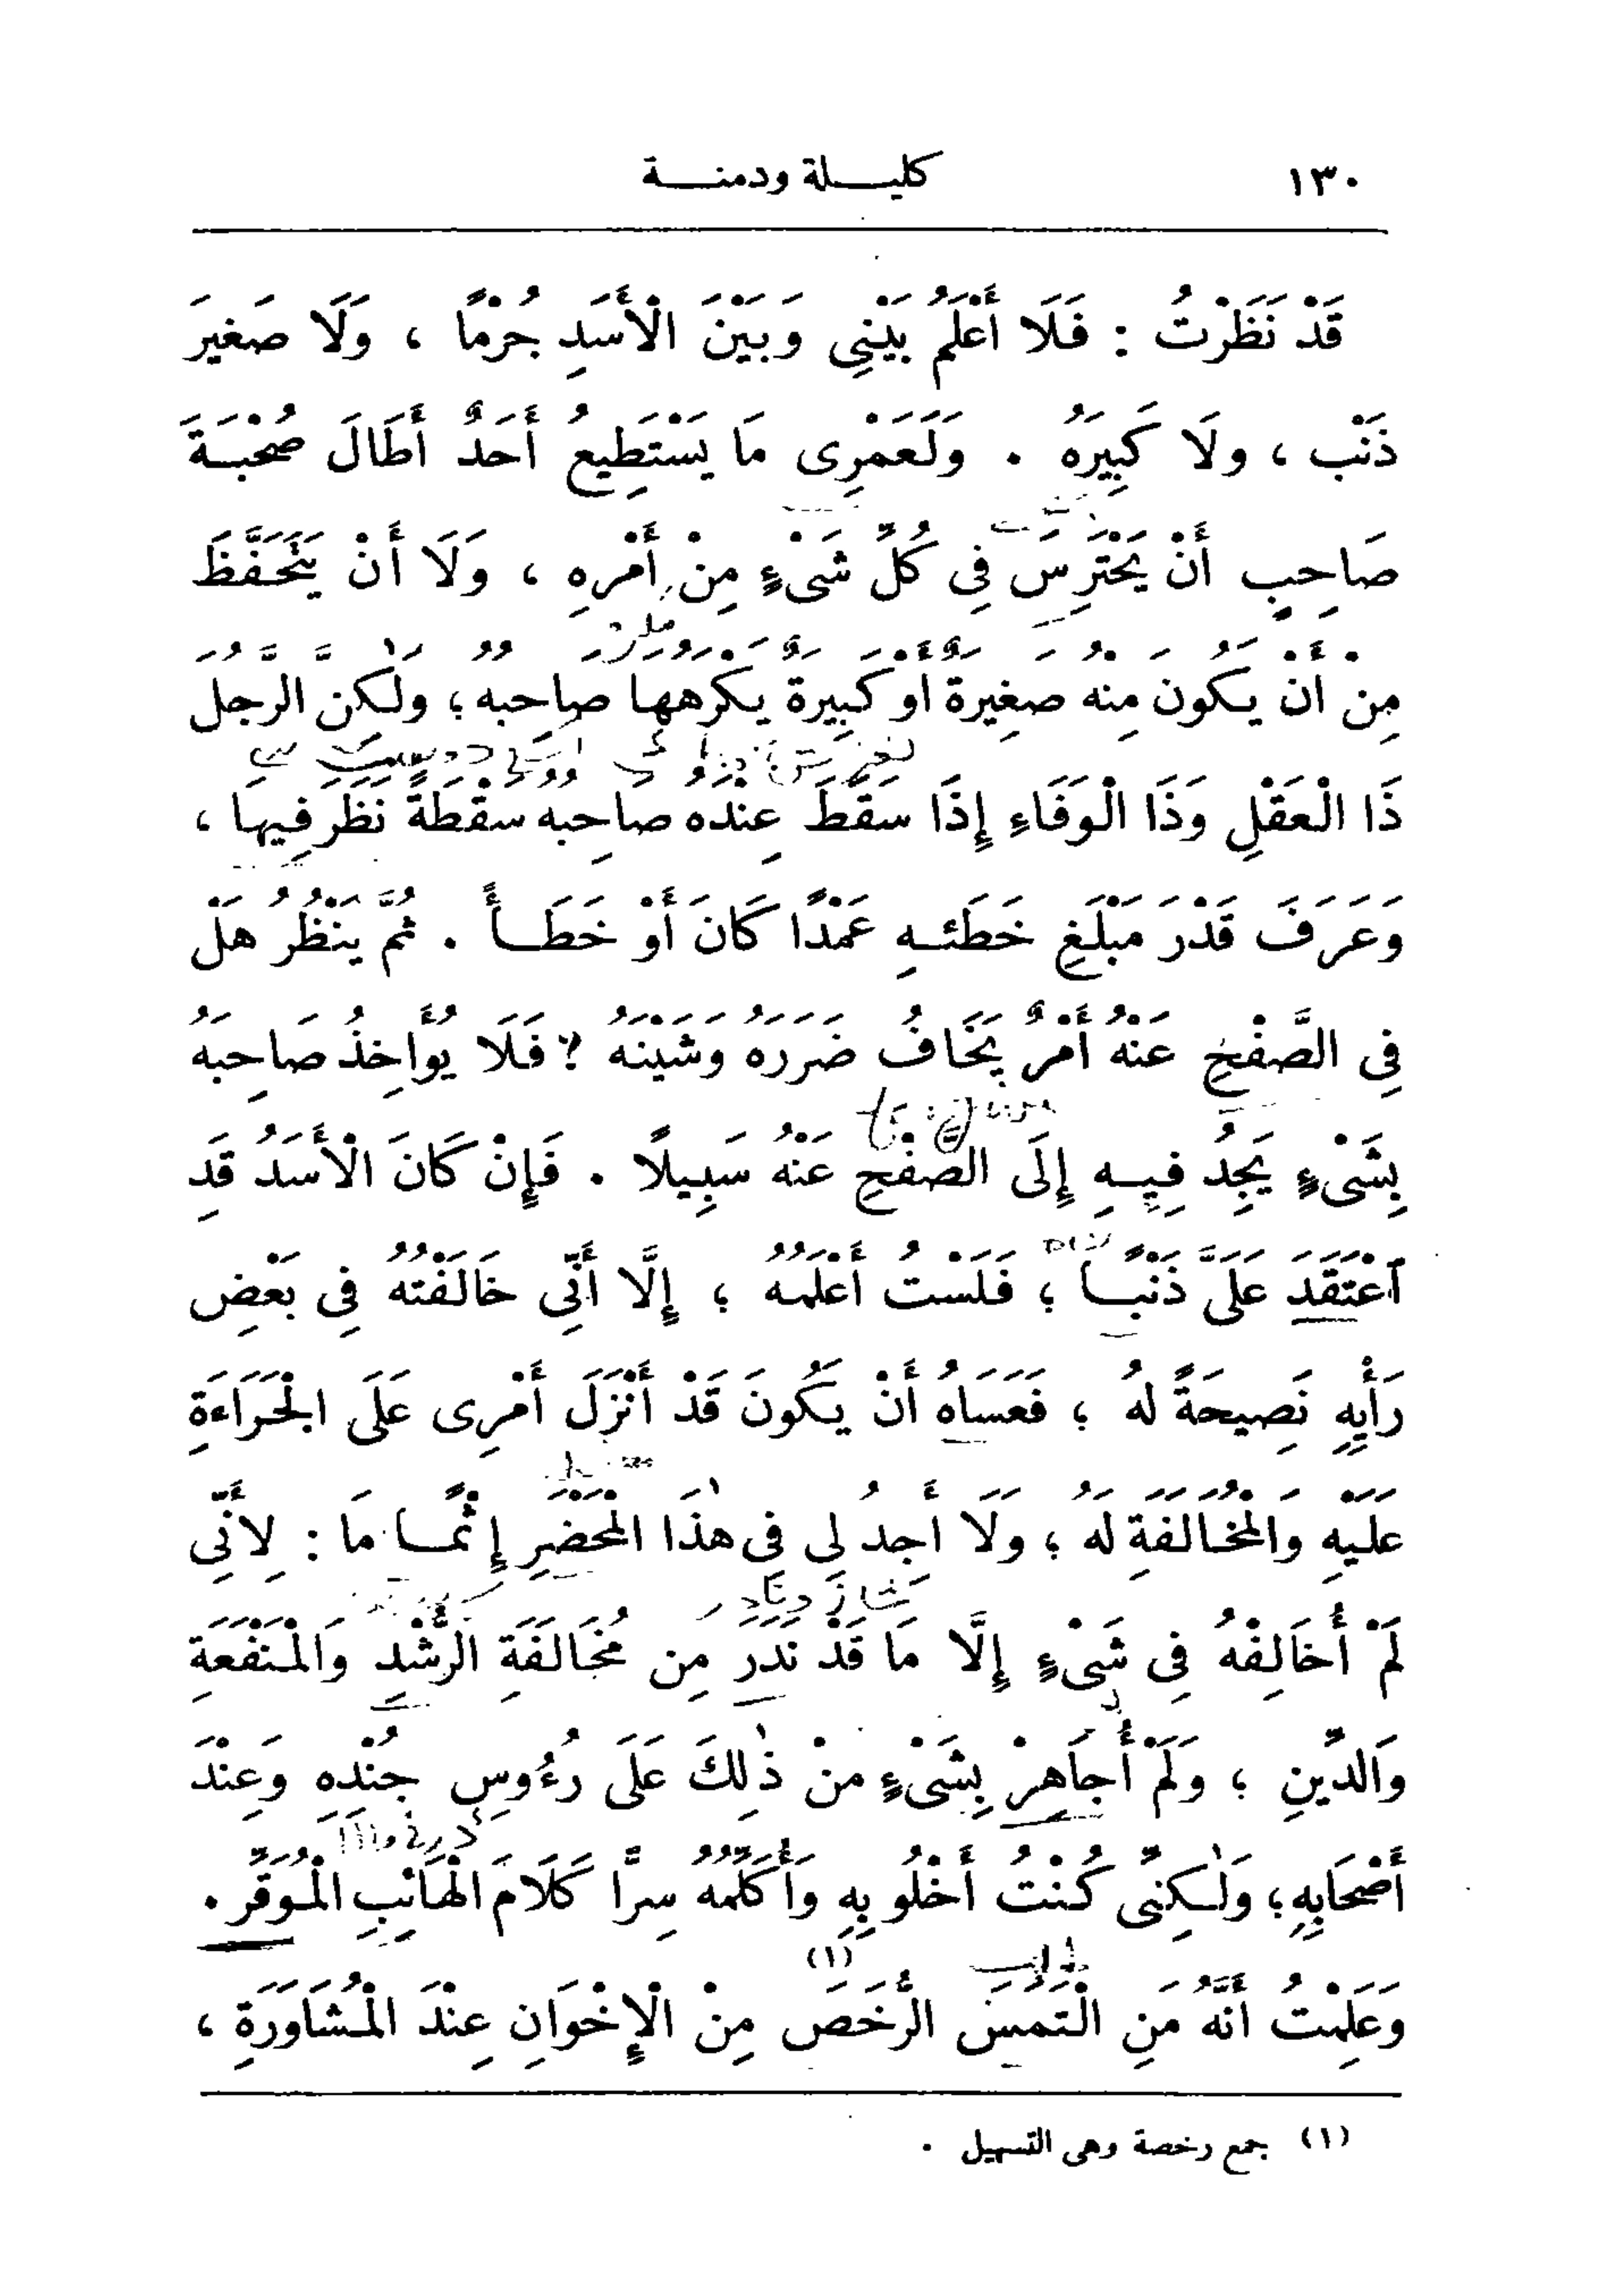 ١٣٠ كليلة ودمنة
قَدْ نَظَرْتُ : فَلَا أَعْلَمُ بَيْنِى وَبَيْنَ الْأَسَدِ جُرْمًا ، وَلَا صَغِيرَ
ذَنْب ، ولَا كَبِيرَهُ . وَلَعَمْرِى مَا يَسْتَطِيعُ أَحَدٌ أَطَالَ صُحْبَةَ
صَاحِبٍ أَنْ يَحْتَرِسَ فِى كُلِّ شَىْءٍ مِنْ أَمْرِهِ ، وَلَا أَنْ يَتَحَفَّظَ
مِنْ أَنْ يَكُونَ مِنْهُ صَغِيرَةٌ أَوْ كَبِيرَةٌ يَكْرَهُهَا صَاحِبُهُ ؛ وَلٰكِنَّ الرَّجُلَ
ذَا الْعَقْلِ وَذَا الْوَفَاءِ إِذَا سَقَطَ عِنْدَهُ صَاحِبُهُ سَقْطَةً نَظَرَ فِيهَا ،
وَعَرَفَ قَدْرَ مَبْلَغِ خَطَئِهِ عَمْدًا كَانَ أَوْ خَطَأً . ثُمَّ يَنْظُرُ هَلْ
فِى الصَّفْحِ عَنْهُ أَمْرٌ يَخَافُ ضَرَرَهُ وَشَيْنَهُ ؟ فَلَا يُؤَاخِذُ صَاحِبَهُ
بِشَىْءٍ يَجِدُ فِيهِ إِلَى الصَّفْحِ عَنْهُ سَبِيلًا . فَإِنْ كَانَ الْأَسَدُ قَدِ
اعْتَقَدَ عَلَىَّ ذَنْبًا ؛ فَلَسْتُ أَعْلَمُهُ ؛ إِلَّا أَنِّى خَالَفْتُهُ فِى بَعْضِ
رَأْيِهِ نَصِيحَةً لهُ ؛ فَعَسَاهُ أَنْ يَكُونَ قَدْ أَنْزَلَ أَمْرِى عَلَى الْجَرَاءَةِ
عَلَيْهِ وَالْمُخَالَفَةِ لَهُ ؛ وَلَا أَجِدُ لِى فِى هٰذَا الْمَحْضَرِ إِثْمًا مَا : لِأَنِّى
لَمْ أُخَالِفْهُ فِى شَىْءٍ إِلَّا مَا قَدْ نَدَرَ مِن مُخَالَفَةِ الرُّشْدِ وَالْمَنْفَعَةِ
وَالدِّينِ ؛ وَلَمْ أُجَاهِرْ بِشَىْءٍ منْ ذٰلِكَ عَلَى رُءُوسِ جُنْدِهِ وَعِنْدَ
أَصْحَابِهِ ؛ وَلٰكِنِّى كُنْتُ أَخْلُو بِهِ وَأُكَلِّمُهُ سِرًّا كَلَامَ الْهَائِبِ الْمُوَقِّرِ .
وَعَلِمْتُ أَنَّهُ مَنِ الْتَمَسَ الرُّخَصَ (١) مِنْ الْإِخْوَانِ عِنْدَ الْمُشَاوَرَةِ ،
(١) جمع رخصة وهى التسهيل .